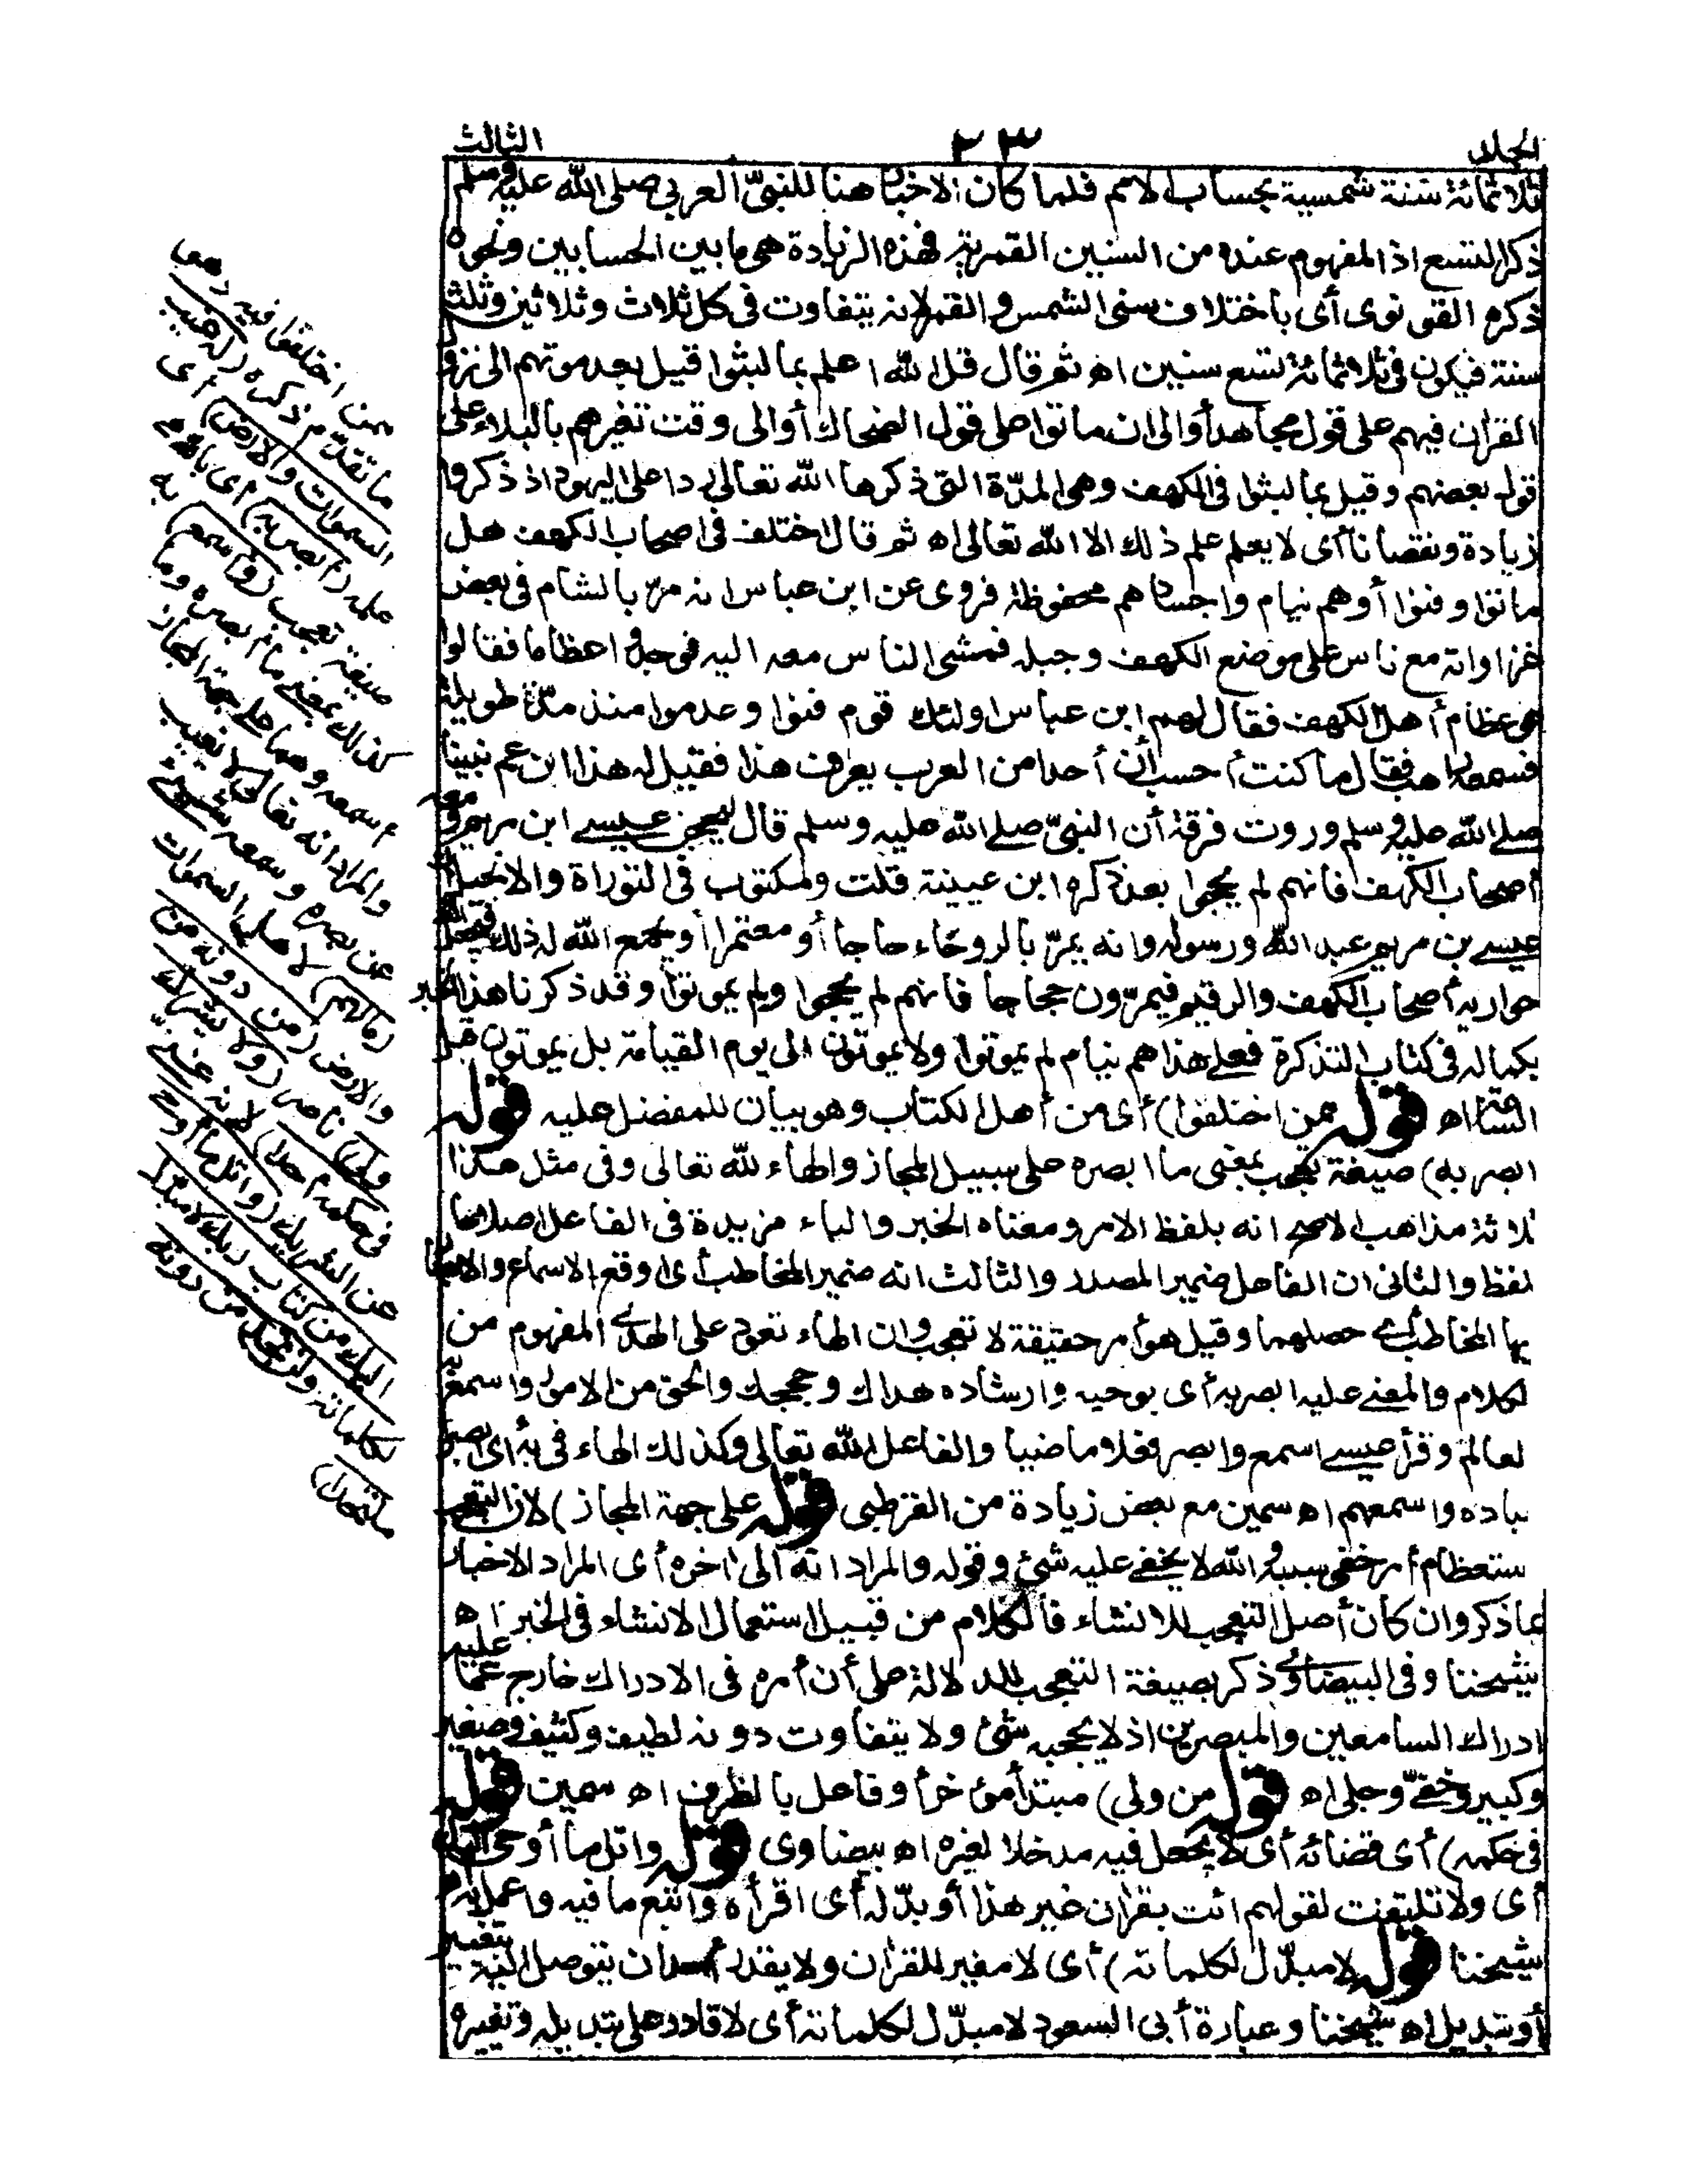 المجلد ٢٣ الثالث
ثلاثمائة سنة شمسية بحساب الامم فلما كان الاخبار هنا للنبيّ العربي صلى الله عليه وسلم
ذكر التسع اذ المفهوم عنده من السنين القمرية فهذه الزيادة هي ما بين الحسابين ونحوه
ذكره القونوى أى باختلاف سنى الشمس والقمر لانه يتفاوت فى كل ثلاث وثلاثين وثلث
سنة فيكون فى ثلاثمائة تسع سنين اه ثم قال قل الله اعلم بما لبثوا قيل بعد موتهم الى نزول
القران فيهم على قول مجاهد أو الى ان ماتوا على قول الضحاك أو الى وقت تغيرهم بالبلاء على
قول بعضهم وقيل بما لبثوا فى الكهف وهى المدّة التى ذكرها الله تعالى ردا على اليهود اذ ذكروا
زيادة ونقصانا أى لا يعلم علم ذلك الا الله تعالى اه ثم قال اختلف فى اصحاب الكهف هل
ماتوا وفنوا أو هم نيام واجسادهم محفوظة فروى عن ابن عباس انه مرّ بالشام فى بعض
غزاواته مع ناس على موضع الكهف وجبله فمشى الناس معه اليه فوجدوا عظاما فقالوا
هى عظام أهل الكهف فقال لهم ابن عباس اولئك قوم فنوا وعدموا منذ مدّة طويلة
فسمعه راهب فقال ما كنت أحسب أن أحدا من العرب يعرف هذا فقيل له هذا ابن عم نبينا
صلى الله عليه وسلم وروت فرقة أن النبىّ صلى الله عليه وسلم قال ليحجن عيسى ابن مريم ومعه
أصحاب الكهف فانهم لم يحجوا بعد ذكره ابن عيينة قلت ومكتوب فى التوراة والانجيل أن
عيسى بن مريم عبد الله ورسوله وانه يمرّ بالروحاء حاجا أو معتمرا أو يجمع الله له ذلك فيجعل الله
حواريه أصحاب الكهف والرقيم فيمرّون حجاجا فانهم لم يحجوا ولم يموتوا وقد ذكرنا هذا الخبر
بكماله فى كتاب التذكرة فعلى هذا هم نيام لم يموتوا ولا يموتون الى يوم القيامة بل يموتون قبل
الساعة اه قوله ممن اختلفوا) أى من أهل الكتاب وهو بيان للمفضل عليه قوله
ابصر به) صيغة تعجب بمعنى ما ابصره على سبيل المجاز والهاء لله تعالى وفى مثل هذا
ثلاثة مذاهب الاصح انه بلفظ الامر ومعناه الخبر والباء مزيدة فى الفاعل اصلاحا
لفظ والثانى ان الفاعل ضمير المصدر والثالث انه ضمير المخاطب أى اوقع الاسماع والابصار
بها المخاطب أى حصلهما وقيل هو أمر حقيقة لا تعجب وان الهاء تعود على الهدى المفهوم من
لكلام والمعنى عليه ابصر به أى بوحيه وارشاده هداك وحججك والحق من الامور واسمع به
لعالم وقرأ عيسى اسمع وابصر فعلا ماضيا والفاعل الله تعالى وكذلك الهاء فى به أى بصر
عباده واسمعهم اه سمين مع بعض زيادة من القرطبى قوله على جهة المجاز) لان التعجب
ستعظام أمر خفى سببه والله لا يخفى عليه شئ وقوله والمراد انه الى اخره أى المراد الاخبار
بما ذكر وان كان أصل التعجب للانشاء فالكلام من قبيل استعمال الانشاء فى الخبر اه
شيخنا وفى البيضاوى ذكر بصيغة التعجب للدلالة على أن أمره فى الادراك خارج عما عليه
ادراك السامعين والمبصرين اذ لا يحجبه شئ ولا يتفاوت دونه لطيف وكثيف وصغير
وكبير وخفىّ وجلى اه قوله من ولى) مبتدأ مؤخر أو فاعل بالظرف اه سمين قوله
فى حكمه) أى قضائه أى لا يجعل فيه مدخلا لغيره اه بيضاوى قوله واتل ما أوحى اليك)
أى ولا تلتفت لقولهم ائت بقران غير هذا أو بدّله أى اقرأه واتبع ما فيه واعمل به اه
شيخنا قوله لا مبدّل لكلماته) أى لا مغير للقران ولا يقدر أحد ان يتوصل اليه بتغيير
أو تبديل اه شيخنا وعبارة أبى السعود لا مبدّل لكلماته أى لا قادر على تبديله وتغييره
ممن اختلفوا فيه وهو
ما تقدّم ذكره (له غيب
السموات والارض) أى
علمه (أبصر به) أى بالله
صيغة تعجب (وأسمع) به
كذلك بمعنى ما أبصره وما
أسمعه وهما على جهة المجاز
والمراد انه تعالى لا يغيب
عن بصره وسمعه شئ
(مالهم) لاهل السموات
والارض (من دونه من
ولى) ناصر (ولا يشرك
فى حكمه أحدا) لانه غنىّ
عن الشريك (واتل ما أوحى
اليك من كتاب ربك لا مبدل
لكلماته ولن تجد من دونه
ملتحدا)